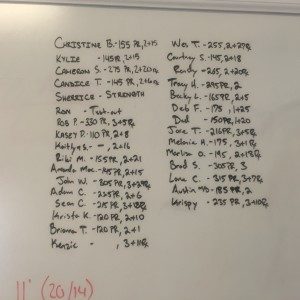 Christine B. - 155 PR, 2+15
Kylie - 145R, 2+15
Cameron S. - 275 PR, 2+20
Candice T. - 145 PR, 2+16
Sherrice - Strength
Ron - Test-out
Rob P. - 330 PR, 3+5
Kasey P. - 110 PR, 2+8
Kaitlyn S. - , 2+16
Riki M. - 155 PR, 2+21
Amanda Mac. - 2+15
John W. - 305 PR,
Adam C. - 225 PR, 2+6
Sean C. - 215 PR,
Krista K. - 120 PR, 2+10
Brianna T. - 120 PR, 2+1
Kenzie - , 3+11
Wes T. - 255, 2+27
Courtney S. - 145, 2+18
Randy - 265, 2+20
Tracy H. - 295 PR, 2
Becky L. - 165 PR, 2+5
Deb F. - 175, 1+25
Dud - 150 PR, 1+20
Jase T. - 216 PR, 3+5
Melanie H. - 175, 3+1
Marlisa O. - 195, 2+18
Brad S. - 305 PR, 3
Lane C. - 315 PR, 3+7
Austin - 185 PR, 2
Krispy - 235 PR, 3+10
11' (20/14)